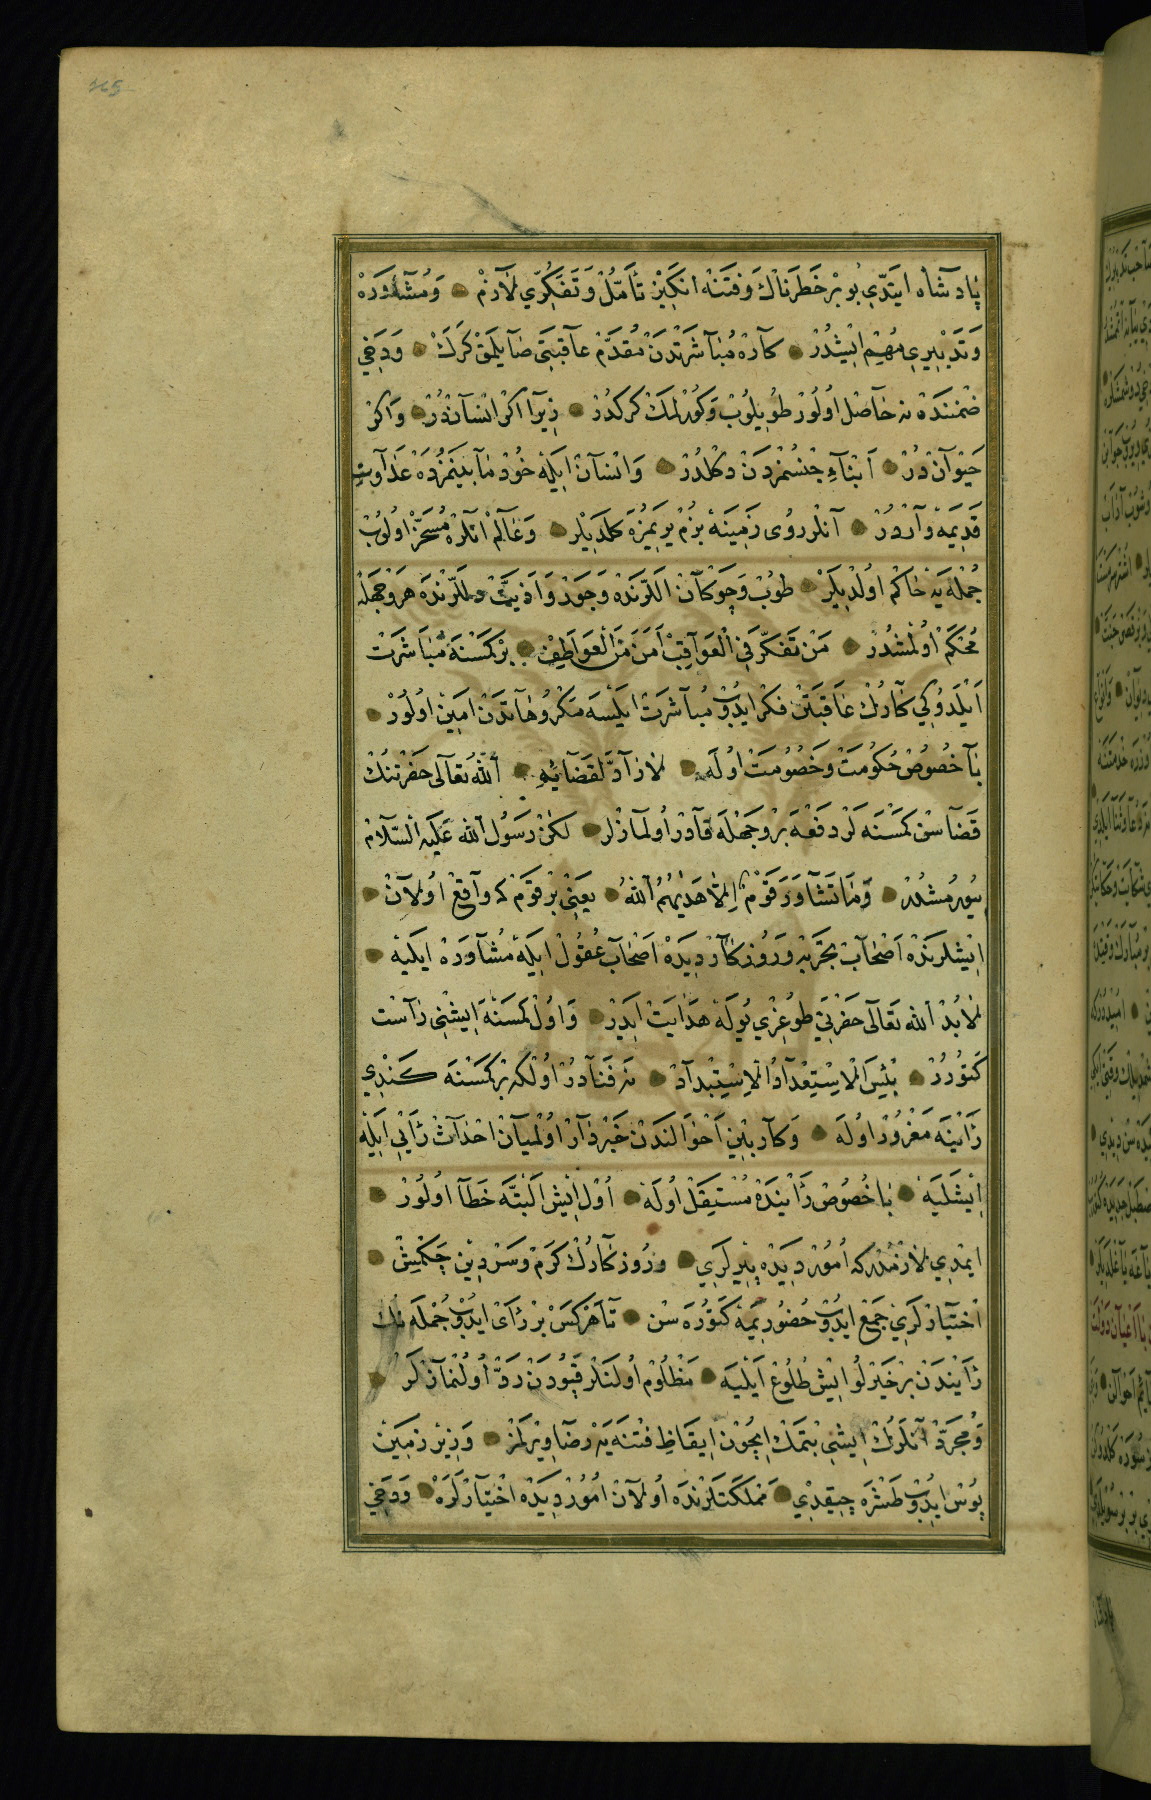 پادشاه ایتدی بو بر خطرناك و فتنه انكیز تأمل و تفكری لازم و مشاوره
و تدبیری مهیم ایشدر كاره مباشرتدن مقدم عاقبتی صایلمق كرك و دخی
ضمننده نه حاصل اولور طویلوب و كورلمك كركدر زیرا اكر انساندر و اكر
حیواندر ابناء جنسمزدن دكلدر و انسان ایله خود مابینمزده عداوت
قدیمه واردر آنلر روی زمینه بزم یریمزه كلدیلر و عالم انلره مسخر اولوب
جمله یه حاكم اولدیلر طوب و چوكان اللرنده و جود و اذیت دللرنده هر وجهله
محكم اولمشدر من تفكر فی العواقب أمن من العواطف بر كمسنه مباشرت
ایلدوكی كارك عاقبتن فكر ایدوب مباشرت ایلسه مكروهاتدن امین اولور
با خصوص حكومت و خصومت اوله لا راد لقضائه الله تعالی حضرتنك
قضاسن كمسنه لر دفعه بر وجهله قادر اولمازلر لكن رسول الله علیه السلام
بیورمشلر و ما تشاور قوم الا هدیهم الله یعنی بر قوم كه واقع اولان
ایشلرنده اصحاب تجربه و روزكار دیده اصحاب عقول ایله مشاوره ایلیه
لابد الله تعالی حضرتی طوغری یوله هدایت ایدر و اول كمسنه ایشنی راست
كتورر بئس الاستعداد الاستبداد نه فنادر اولكه بر كمسنه كندی
رأینه مغرور اوله و كاربین احوالندن خبردار اولمیان احداث رأیی ایله
ایشلیه با خصوص رأینده مستقل اوله اول ایش البته خطا اولور
ایمدی لازمدر كه امور دیده پیرلری و روزكارك كرم و سردین چكمش
اختیارلری جمع ایدوب حضوریمه كتوره سن تا هر كس بر رأی ایدوب جمله نك
رأیندن بر خیرلو ایش طلوع ایلیه مظلوم اولنلر قپودن رد اولنمازلر
و مجرد آنلرك ایشی بتمك ایچون ایقاظ فتنه یه رضا ویرلمز وزیر زمین
بوس ایدوب طشره چیقدی مملكتلرنده اولان امور دیده اختیارلره و دخی